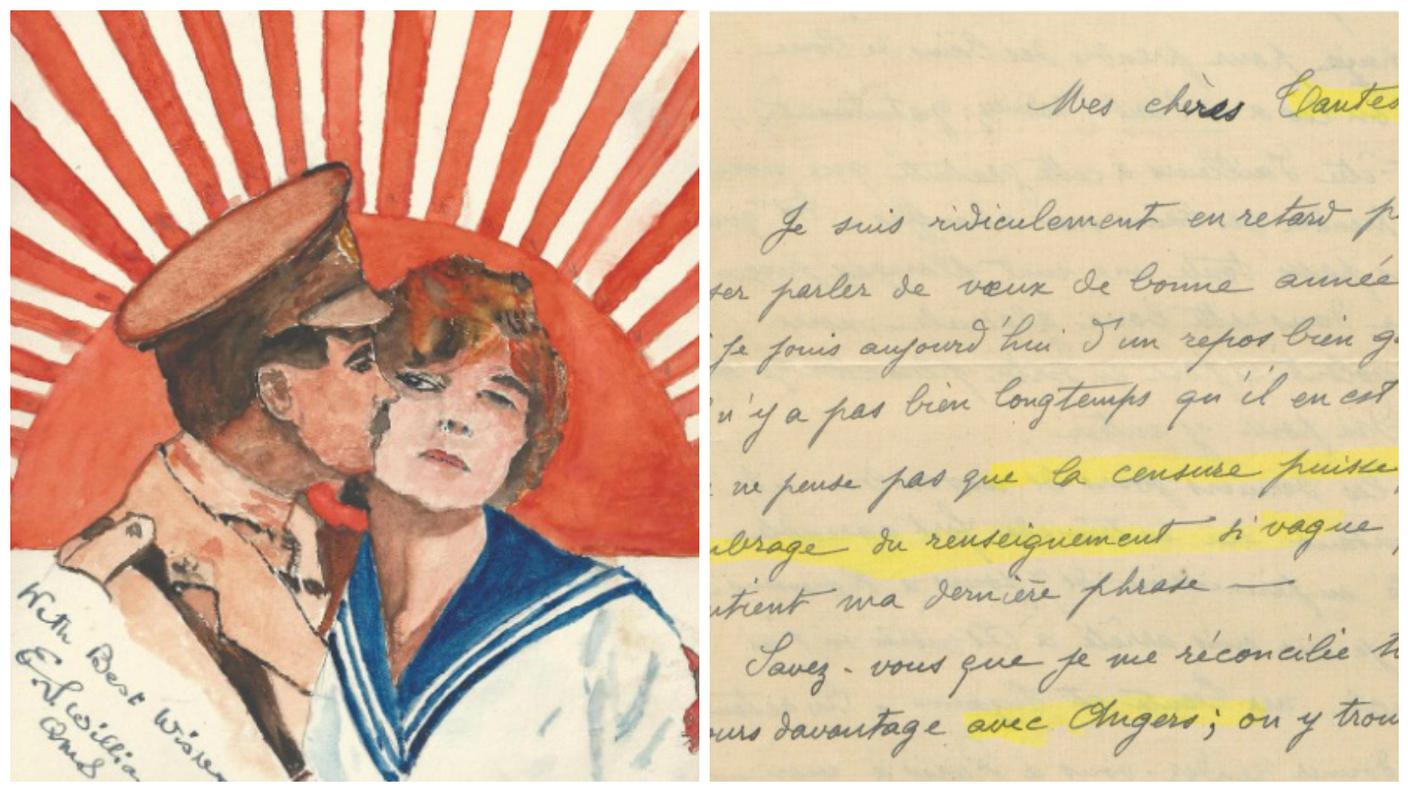 With Best Wishes
Mes chères Tantes
Je suis ridiculement en retard p
ser parler de vœux de bonne année
je jouis aujourd'hui d'un repos bien g
n'y a pas bien longtemps qu'il en est
ne pense pas que la censure puisse
mbrage du renseignement si vague
ntient ma dernière phrase —
Savez-vous que je me réconcilie t
ours davantage avec Angers ; on y trou